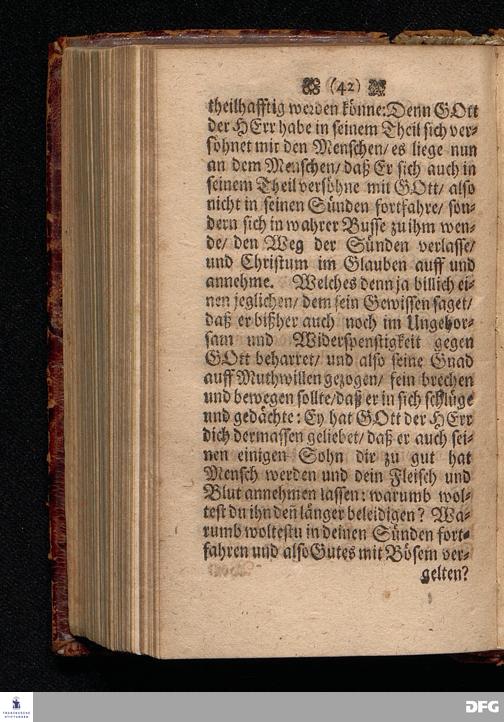 (42)
theilhafftig werden könne: Denn GOtt
der HErr habe in seinem Theil sich ver-
söhnet mit den Menschen/ es liege nun
an dem Menschen/ daß Er sich auch in
seinem Theil versöhne mit GOtt/ also
nicht in seinen Sünden fortfahre/ son-
dern sich in wahrer Busse zu ihm wen-
de/ den Weg der Sünden verlasse/
und Christum im Glauben auff und
annehme. Welches denn ja billich ei-
nen jeglichen/ dem sein Gewissen saget/
daß er bißher auch noch im Ungehor-
sam und Widerspenstigkeit gegen
GOtt beharret/ und also seine Gnad
auff Muthwillen gezogen/ sein brechen
und bewegen sollte/ daß er in sich schlüge
und gedächte: Ey hat GOtt der HErr
dich dermassen geliebet/ daß er auch sei-
nen einigen Sohn dir zu gut hat
Mensch werden und dein Fleisch und
Blut annehmen lassen: warumb wol-
test du ihn deñ länger beleidigen? Wa-
rumb woltestu in deinen Sünden fort-
fahren und also Gutes mit Bösem ver-
gelten?
FRANCKESCHE
STIFTUNGEN
DFG